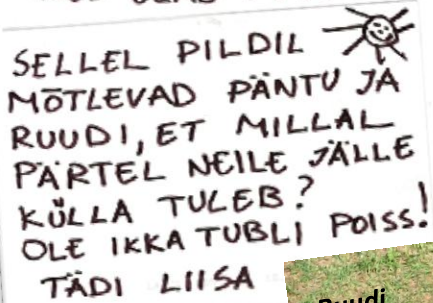 SELLEL PILDIL
MÕTLEVAD PÄNTU JA
RUUDI, ET MILLAL
PÄRTEL NEILE JÄLLE
KÜLLA TULEB?
OLE IKKA TUBLI POISS!
TÄDI LIISA
Ruudi